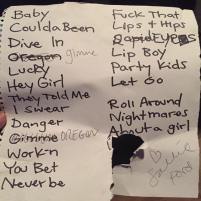 Baby
Coulda Been
Dive In
Oregon gimme
Lucky
Hey Girl
They Told Me
I Swear
Danger
Gimme OREGON
Work'n
You Bet
Never be
Fuck That
Lips + Hips
Rapid Eyes
Lip Boy
Party Kids
Let Go
Roll Around
Nightmares
About a girl
Sallie
Ford